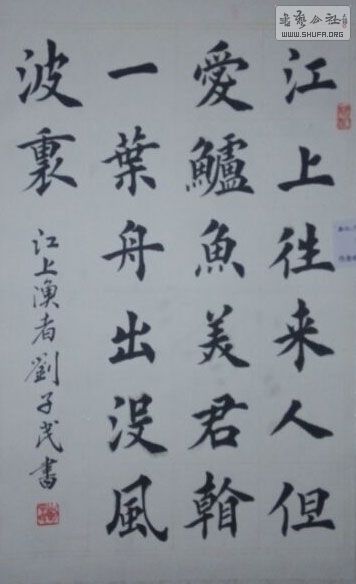 书艺公社
WWW.SHUFA.ORG
江上往来人但
愛鱸魚美君
一葉舟出没風
波裏
江上漁者劉子茂書